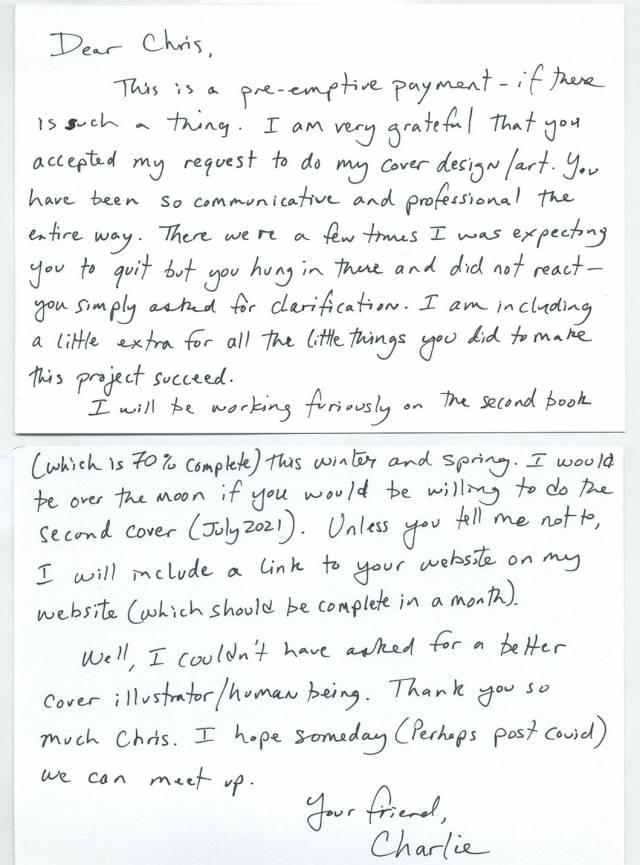 Dear Chris,
This is a pre-emptive payment - if there
is such a thing. I am very grateful that you
accepted my request to do my cover design/art. You
have been so communicative and professional the
entire way. There were a few times I was expecting
you to quit but you hung in there and did not react -
you simply asked for clarification. I am including
a little extra for all the little things you did to make
this project succeed.
I will be working furiously on the second book
(which is 70% complete) this winter and spring. I would
be over the moon if you would be willing to do the
second cover (July 2021). Unless you tell me not to,
I will include a link to your website on my
website (which should be complete in a month).
Well, I couldn't have asked for a better
cover illustrator/human being. Thank you so
much Chris. I hope someday (Perhaps post covid)
we can meet up.
Your friend,
Charlie